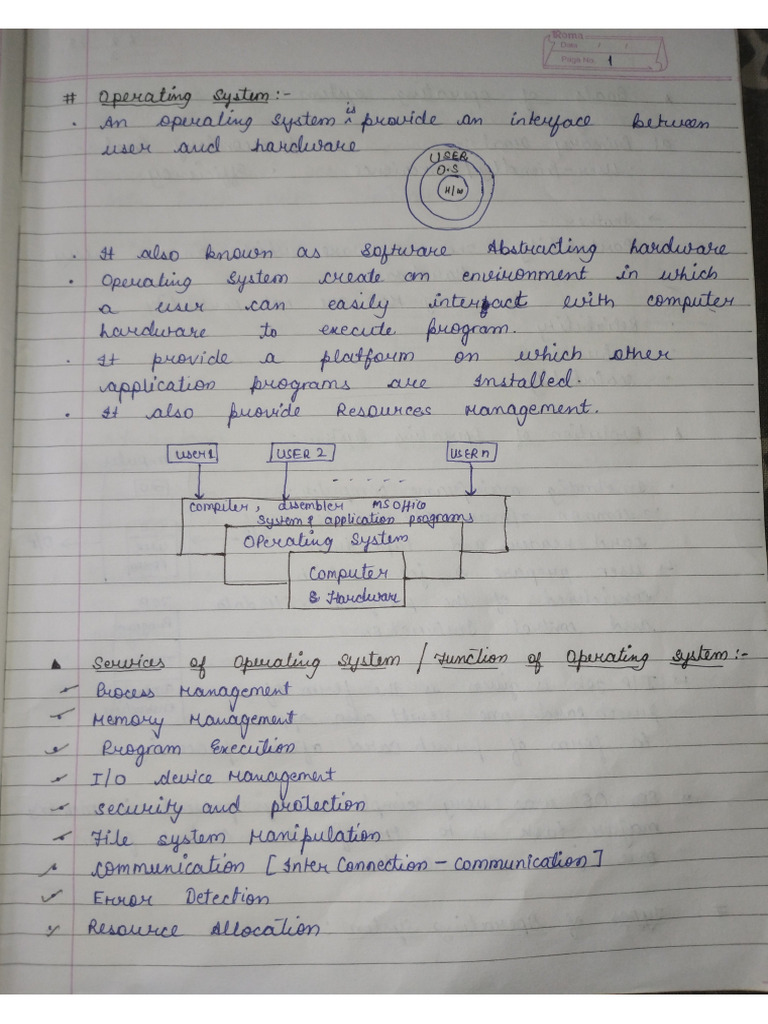 Roma
Date / /
Page No. 1
# Operating System:-
• An operating system is provide an interface between
user and hardware
USER
O.S
H/W
• It also known as Software Abstracting hardware
• Operating System create an environment in which
a user can easily interact with computer
hardware to execute program.
• It provide a platform on which other
application programs are Installed.
• It also provide Resources Management.
User 1 USER 2 ----- USER n
Computer, assembler MS Office
System & application programs
Operating System
Computer
& Hardware
Services of Operating System / Function of Operating System:-
Process Management
Memory Management
Program Execution
I/O device Management
Security and protection
File system Manipulation
Communication [Inter Connection - Communication]
Error Detection
Resource Allocation